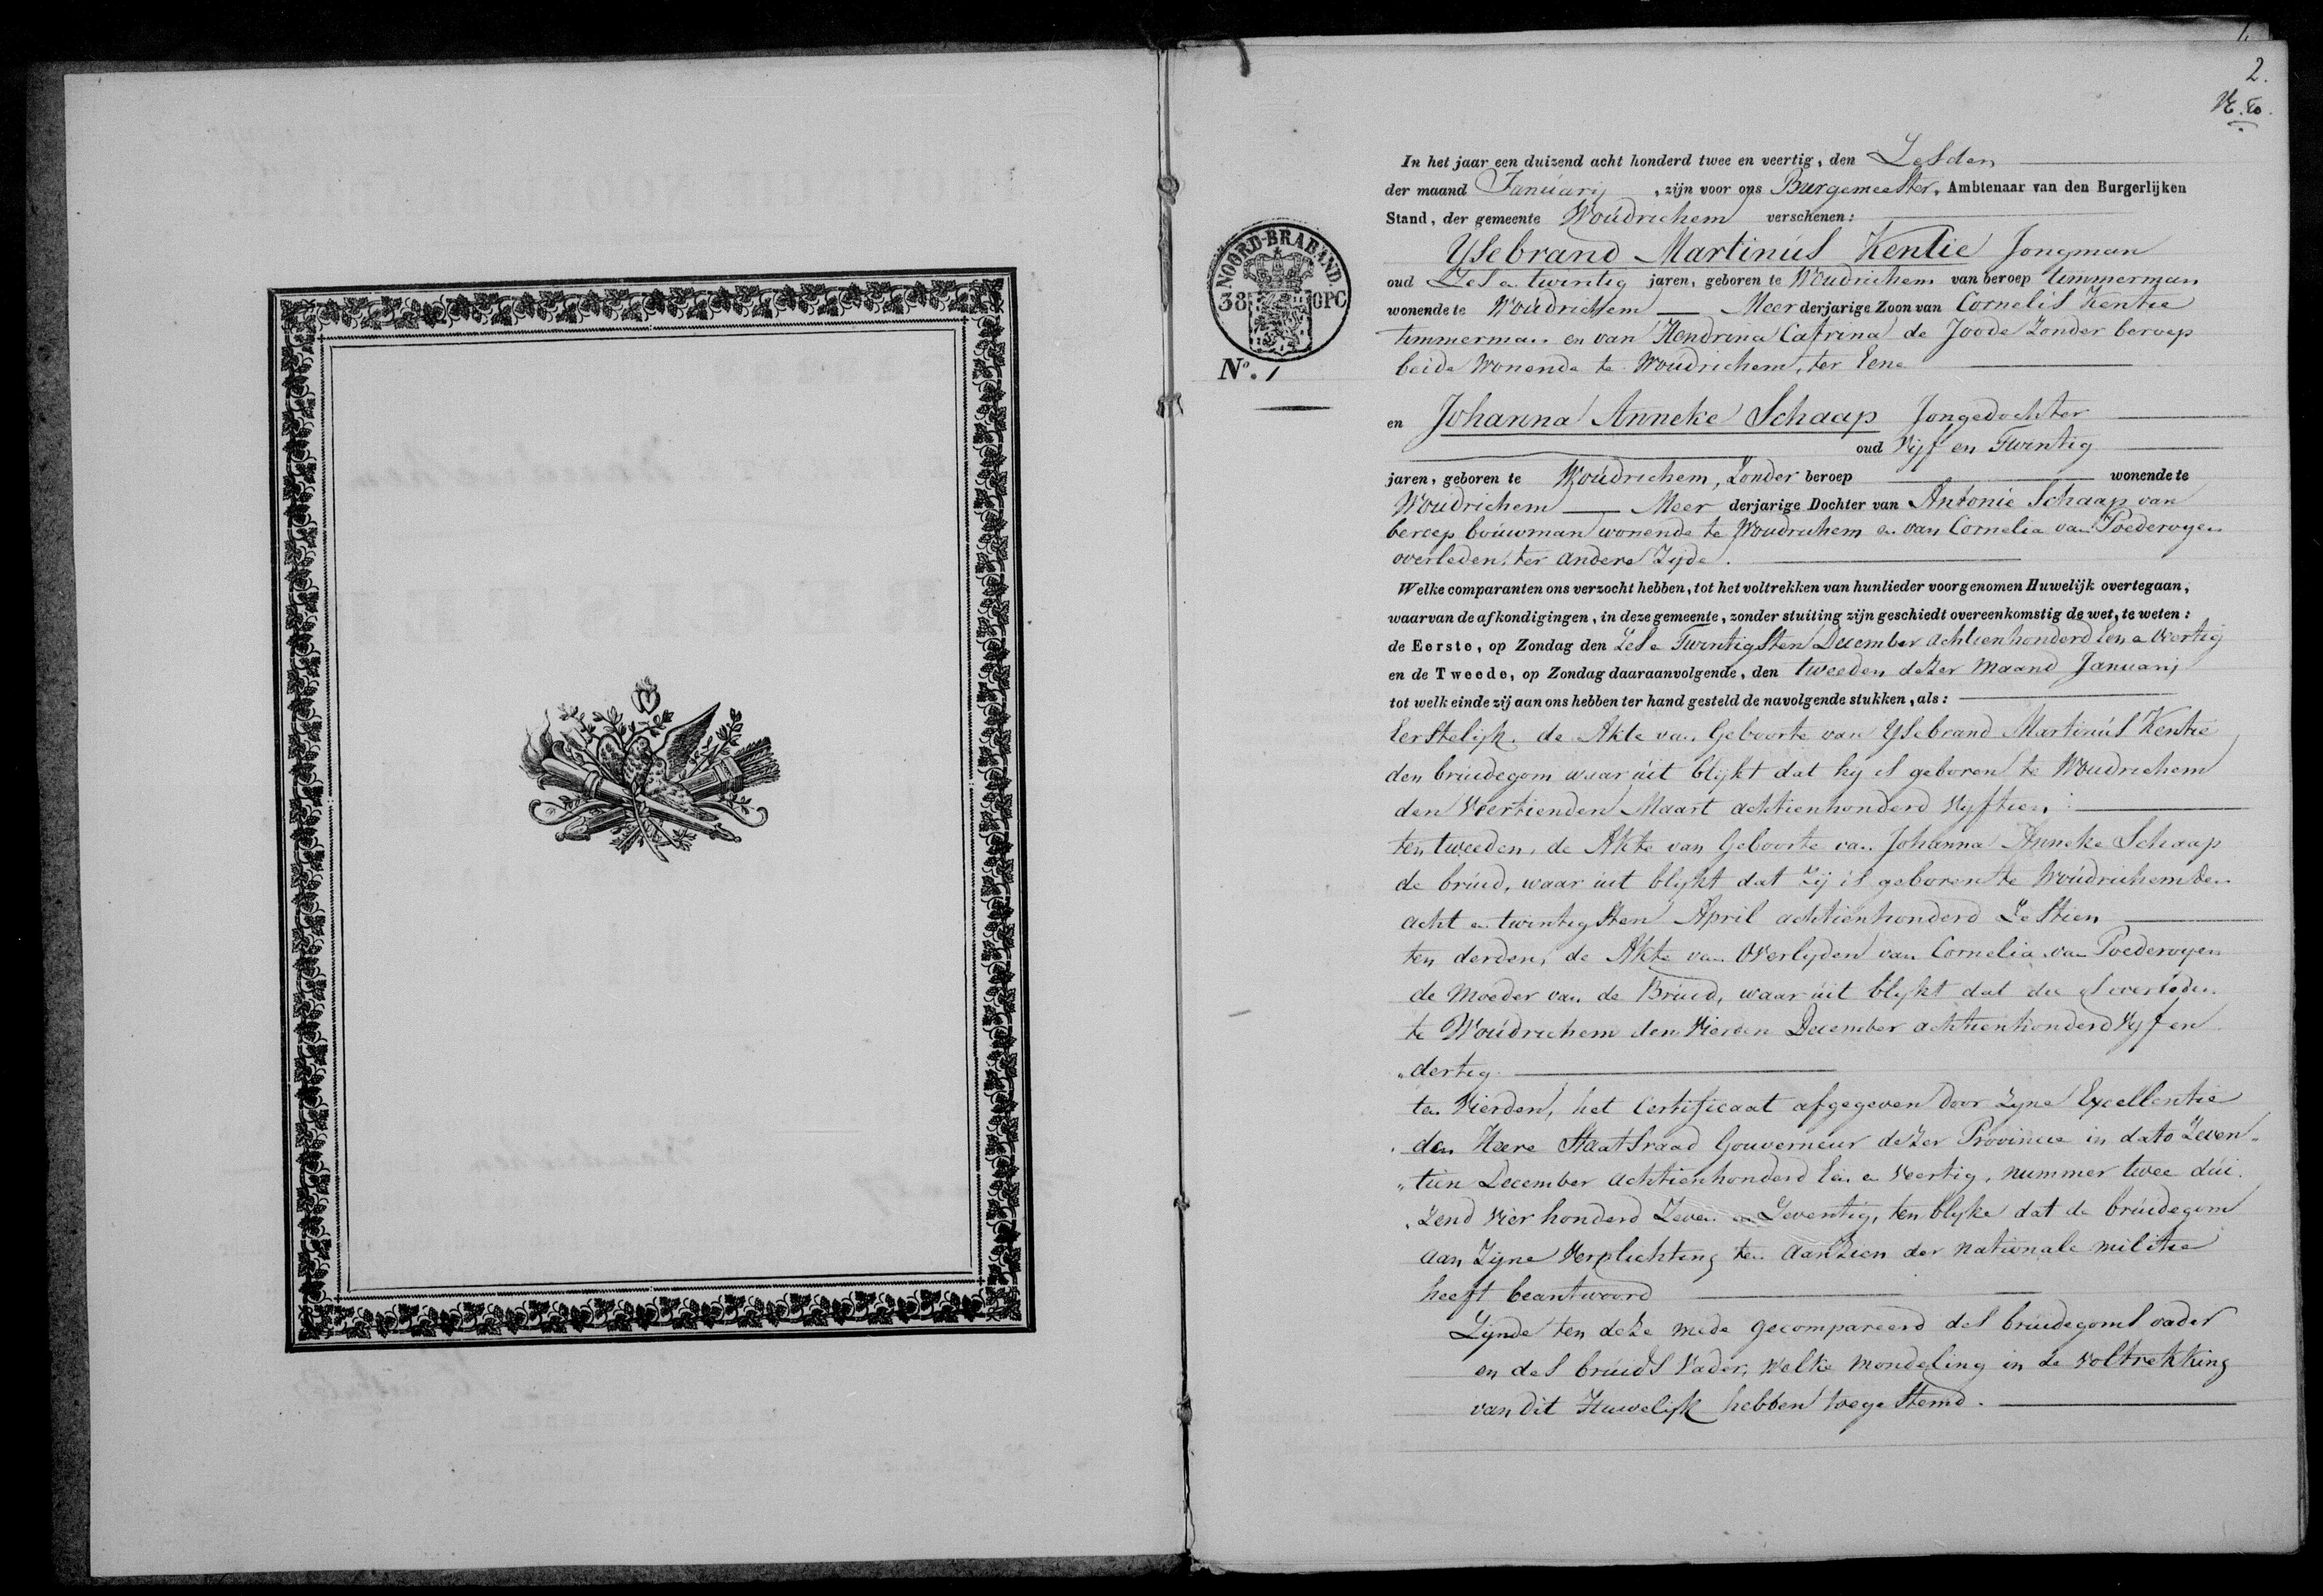 1.
2.
In het jaar een duizend acht honderd twee en veertig, den Zesden
der maand Januarij, zijn voor ons Burgemeester, Ambtenaar van den Burgerlijken
Stand, der gemeente Woudrichem verschenen:
Ysebrand Martinus Kentie Jongman
oud Zes en twintig jaren, geboren te Woudrichem van beroep timmerman
wonende te Woudrichem Meerderjarige Zoon van Cornelis Kentie
timmerman en van Hendrina Catrina de Joode Zonder beroep
beide Wonende te Woudrichem, ter Eene
NOORD-BRABAND
38 OPC
No. 1
en Johanna Anneke Schaap Jongedochter
oud Vijf en Twintig
jaren, geboren te Woudrichem, Zonder beroep wonende te
Woudrichem Meer derjarige Dochter van Antonie Schaap van
beroep bouwman wonende te Woudrichem en van Cornelia van Poederoyen
overleden, ter andere Zyde.
Welke comparanten ons verzocht hebben, tot het voltrekken van hunlieder voorgenomen Huwelijk overtegaan,
waarvan de afkondigingen, in deze gemeente, zonder stuiting zijn geschiedt overeenkomstig de wet, te weten:
de Eerste, op Zondag den Zes en Twintigsten December achtienhonderd Een en Veertig
en de Tweede, op Zondag daaraanvolgende, den tweeden dezer maand Januarij
tot welk einde zij aan ons hebben ter hand gesteld de navolgende stukken, als:
Eerstelijk. de Akte van Geboorte van Ysebrand Martinus Kentie
den bruidegom waar uit blijkt dat hij is geboren te Woudrichem
den Veertienden Maart achtienhonderd Vyftien.
ten tweeden, de Akte van Geboorte van Johanna Anneke Schaap
de bruid, waar uit blykt dat Zij is geboren te Woudrichem den
acht en twintigsten April achtienhonderd Zestien
ten derden, de Akte van Overlyden van Cornelia van Poederoyen
de Moeder van de Bruid, waar uit blykt dat die is overleden
te Woudrichem den Vierden December achtienhonderd Vyf en
"dertig.
ten Vierden, het Certificaat afgegeven door Zyne Excellentie
den Heere Staatsraad Gouverneur dezer Provincie in dato Zeven"
"tien December achtienhonderd Een en Veertig, nummer twee dui
Zend Vier honderd Zeven en Zeventig, ten blyke dat de bruidegom
aan Zijne Verplichting ten aanzien der nationale militie
heeft beantwoord
Zijnde ten deze mede gecompareerd des bruidegoms vader
en des bruids Vader, Welke mondeling in de voltrekking
van dit Huwelijk hebben toegestemd.